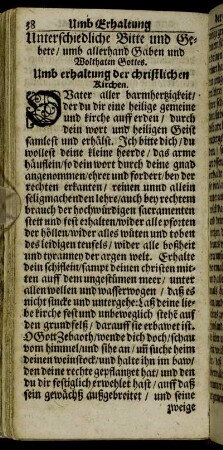 58 Umb Erhaltung
Unterschiedliche Bitte und Ge-
bete / umb allerhand Gaben und
Wolthaten Gottes.
Umb erhaltung der christlichen
Kirchen.
O Vater aller barmhertzigkeit /
der du dir eine heilige gemeine
und kirche auff erden / durch
dein wort und heiligen Geist
samlest und erhälst. Ich bitte dich / du
wollest deine kleine heerde / das arme
häufflein / so dein wort durch deine gnad
angenommen / ehret und fordert / bey der
rechten erkanten / reinen unnd allein
seligmachenden lehre / auch bey rechtem
brauch der hochwürdigen sacramenten
stett und fest erhalten / wider alle pforten
der höllen / wider alles wüten und toben
des leidigen teufels / wider alle boßheit
und tyranney der argen welt. Erhalte
dein schifflein / sampt deinen christen mit-
ten auff dem ungestümen meer / unter
allen wellen und wasserwogen / daß es
nicht sincke und untergehe: Laß deine lie-
be kirche fest und unbeweglich stehē auff
den grundfelß / darauff sie erbawet ist.
O Gott Zebaoth / wende dich doch / schaw
vom himmel / und sihe an / uñ suche heim
deinen weinstock / und halte ihn im baw /
den deine rechte gepflantzet hat / und den
du dir festiglich erwehlet hast / auff daß
sein gewächß außgebreitet / und seine
zweige